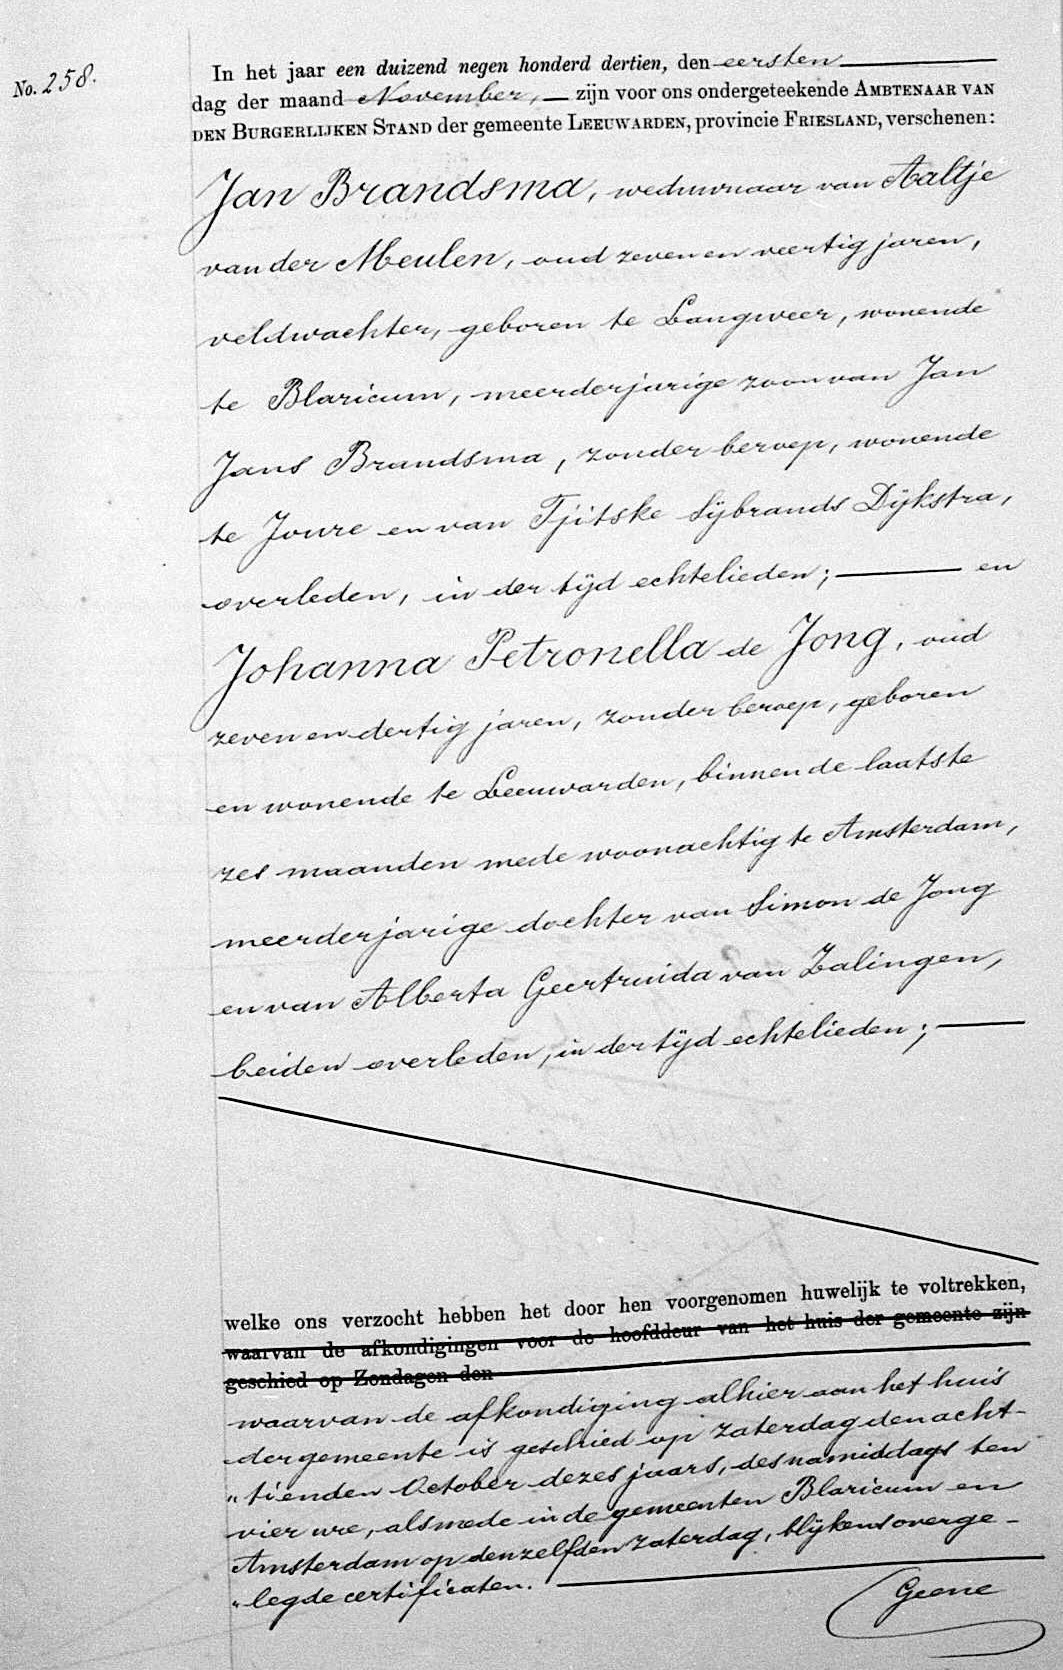 No. 258.
In het jaar een duizend negen honderd dertien, den eersten
dag der maand November, zijn voor ons ondergeteekende AMBTENAAR VAN
DEN BURGERLIJKEN STAND der gemeente LEEUWARDEN, provincie FRIESLAND, verschenen:
Jan Brandsma, weduwnaar van Aaltje
van der Meulen, oud zeven en veertig jaren,
veldwachter, geboren te Langweer, wonende
te Blaricum, meerderjarige zoon van Jan
Jans Brandsma, zonder beroep, wonende
te Joure en van Tjitske Sijbrands Dijkstra,
overleden, in der tijd echtelieden; en
Johanna Petronella de Jong, oud
zeven en dertig jaren, zonder beroep, geboren
en wonende te Leeuwarden, binnen de laatste
zes maanden mede woonachtig te Amsterdam,
meerderjarige dochter van Simon de Jong
en van Alberta Geertruida van Zalingen,
beiden overleden, in der tijd echtelieden;
welke ons verzocht hebben het door hen voorgenomen huwelijk te voltrekken,
waarvan de afkondigingen voor de hoofddeur van het huis der gemeente zijn
geschied op Zondagen den
waarvan de afkondiging alhier aan het huis
der gemeente is geschied op Zaterdag den acht-
„tienden October dezes jaars, des namiddags ten
vier ure, alsmede in de gemeenten Blaricum en
Amsterdam op denzelfden Zaterdag, blijkens overge-
„legde certificaten.
Geene